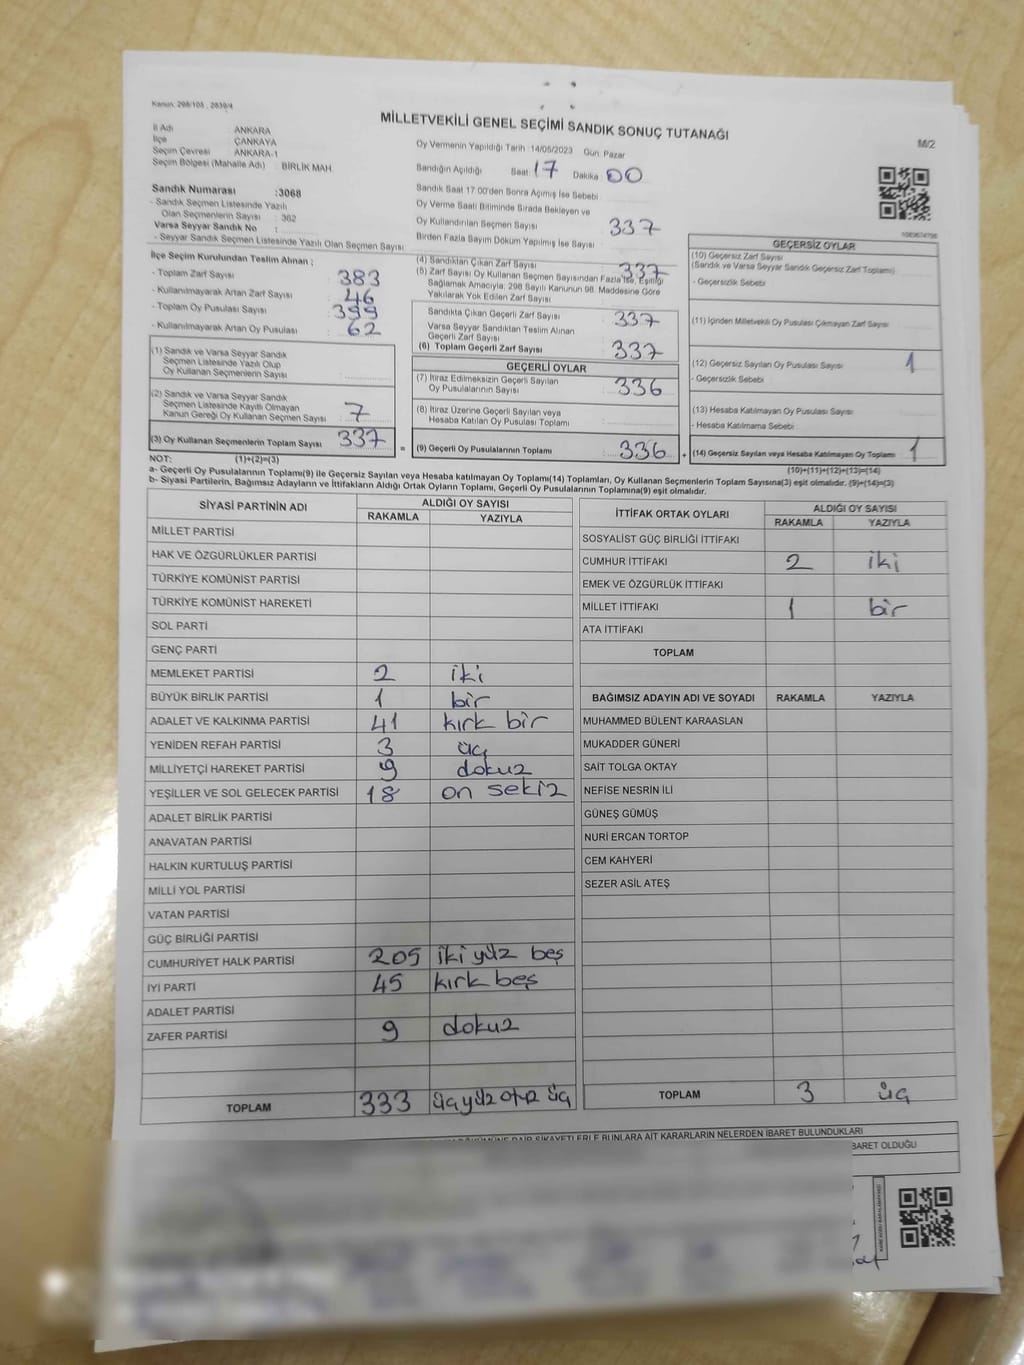 Kanun: 298/105 , 2839/4
MİLLETVEKİLİ GENEL SEÇİMİ SANDIK SONUÇ TUTANAĞI
M/2
İl Adı : ANKARA
İlçe : ÇANKAYA
Seçim Çevresi : ANKARA-1
Seçim Bölgesi (Mahalle Adı) : BİRLİK MAH.
Sandık Numarası :3068
- Sandık Seçmen Listesinde Yazılı
Olan Seçmenlerin Sayısı : 382
Varsa Seyyar Sandık No :
- Seyyar Sandık Seçmen Listesinde Yazılı Olan Seçmen Sayısı
Oy Vermenin Yapıldığı Tarih :14/05/2023 Gün: Pazar
Sandığın Açıldığı Saat 17 Dakika 00
Sandık Saat 17:00'den Sonra Açımış İse Sebebi
Oy Verme Saati Bitiminde Sırada Bekleyen ve
Oy Kullandırılan Seçmen Sayısı 337
Birden Fazla Sayım Döküm Yapılmış İse Sayısı :
İlçe Seçim Kurulundan Teslim Alınan ;
- Toplam Zarf Sayısı 383
- Kullanılmayarak Artan Zarf Sayısı 46
- Toplam Oy Pusulası Sayısı 399
- Kullanılmayarak Artan Oy Pusulası : 62
(1) Sandık ve Varsa Seyyar Sandık
Seçmen Listesinde Yazılı Olup
Oy Kullanan Seçmenlerin Sayısı :
(2) Sandık ve Varsa Seyyar Sandık
Seçmen Listesinde Kayıtlı Olmayan
Kanun Gereği Oy Kullanan Seçmen Sayısı : 7
(3) Oy Kullanan Seçmenlerin Toplam Sayısı 337
(4) Sandıktan Çıkan Zarf Sayısı 337
(5) Zarf Sayısı Oy Kullanan Seçmen Sayısından Fazla İse, Eşitliği
Sağlamak Amacıyla; 298 Sayılı Kanunun 98. Maddesine Göre
Yakılarak Yok Edilen Zarf Sayısı
Sandıkta Çıkan Geçerli Zarf Sayısı : 337
Varsa Seyyar Sandıktan Teslim Alınan
Geçerli Zarf Sayısı
(6) Toplam Geçerli Zarf Sayısı 337
GEÇERLİ OYLAR
(7) İtiraz Edilmeksizin Geçerli Sayılan
Oy Pusulalarının Sayısı : 336
(8) İtiraz Üzerine Geçerli Sayılan veya
Hesaba Katılan Oy Pusulası Toplamı
= (9) Geçerli Oy Pusulalarının Toplamı : 336 +
GEÇERSİZ OYLAR
(10) Geçersiz Zarf Sayısı
(Sandık ve Varsa Seyyar Sandık Geçersiz Zarf Toplamı)
- Geçersizlik Sebebi
(11) İçinden Milletvekili Oy Pusulası Çıkmayan Zarf Sayısı
(12) Geçersiz Sayılan Oy Pusulası Sayısı 1
- Geçersizlik Sebebi
(13) Hesaba Katılmayan Oy Pusulası Sayısı
- Hesaba Katılmama Sebebi
(14) Geçersiz Sayılan veya Hesaba Katılmayan Oy Toplamı 1
NOT: (1)+(2)=(3) (10)+(11)+(12)+(13)=(14)
a- Geçerli Oy Pusulalarının Toplamı(9) ile Geçersiz Sayılan veya Hesaba katılmayan Oy Toplamı(14) Toplamları, Oy Kullanan Seçmenlerin Toplam Sayısına(3) eşit olmalıdır. (9)+(14)=(3)
b- Siyasi Partilerin, Bağımsız Adayların ve İttifakların Aldığı Ortak Oyların Toplamı, Geçerli Oy Pusulalarının Toplamına(9) eşit olmalıdır.
SİYASİ PARTİNİN ADI ALDIĞI OY SAYISI
RAKAMLA YAZIYLA
MİLLET PARTİSİ
HAK VE ÖZGÜRLÜKLER PARTİSİ
TÜRKİYE KOMÜNİST PARTİSİ
TÜRKİYE KOMÜNİST HAREKETİ
SOL PARTİ
GENÇ PARTİ
MEMLEKET PARTİSİ 2 iki
BÜYÜK BİRLİK PARTİSİ 1 bir
ADALET VE KALKINMA PARTİSİ 41 kırk bir
YENİDEN REFAH PARTİSİ 3 üç
MİLLİYETÇİ HAREKET PARTİSİ 9 dokuz
YEŞİLLER VE SOL GELECEK PARTİSİ 18 on sekiz
ADALET BİRLİK PARTİSİ
ANAVATAN PARTİSİ
HALKIN KURTULUŞ PARTİSİ
MİLLİ YOL PARTİSİ
VATAN PARTİSİ
GÜÇ BİRLİĞİ PARTİSİ
CUMHURİYET HALK PARTİSİ 205 iki yüz beş
İYİ PARTİ 45 kırk beş
ADALET PARTİSİ
ZAFER PARTİSİ 9 dokuz
TOPLAM 333 üçyüz otuz üç
İTTİFAK ORTAK OYLARI ALDIĞI OY SAYISI
RAKAMLA YAZIYLA
SOSYALİST GÜÇ BİRLİĞİ İTTİFAKI
CUMHUR İTTİFAKI 2 iki
EMEK VE ÖZGÜRLÜK İTTİFAKI
MİLLET İTTİFAKI 1 bir
ATA İTTİFAKI
TOPLAM
BAĞIMSIZ ADAYIN ADI VE SOYADI RAKAMLA YAZIYLA
MUHAMMED BÜLENT KARAASLAN
MUKADDER GÜNERİ
SAİT TOLGA OKTAY
NEFİSE NESRİN İLİ
GÜNEŞ GÜMÜŞ
NURİ ERCAN TORTOP
CEM KAHYERİ
SEZER ASİL ATEŞ
TOPLAM 3 üç
ŞİKAYETLERLE BUNLARA AİT KARARLARIN NELERDEN İBARET BULUNDUKLARI
İBARET OLDUĞU